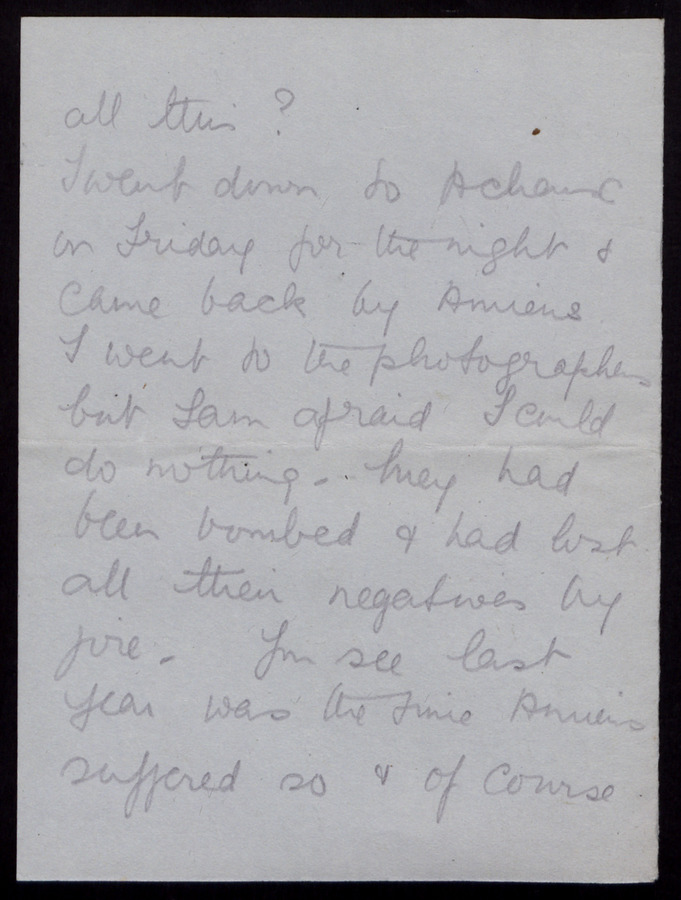 all this ?
I went down to Acheux
on Friday for the night &
came back by Amiens
I went to the photographers
but I am afraid I could
do nothing - they had
been bombed & had lost
all their negatives by
fire - You see last
year was the time Amiens
suffered so & of course